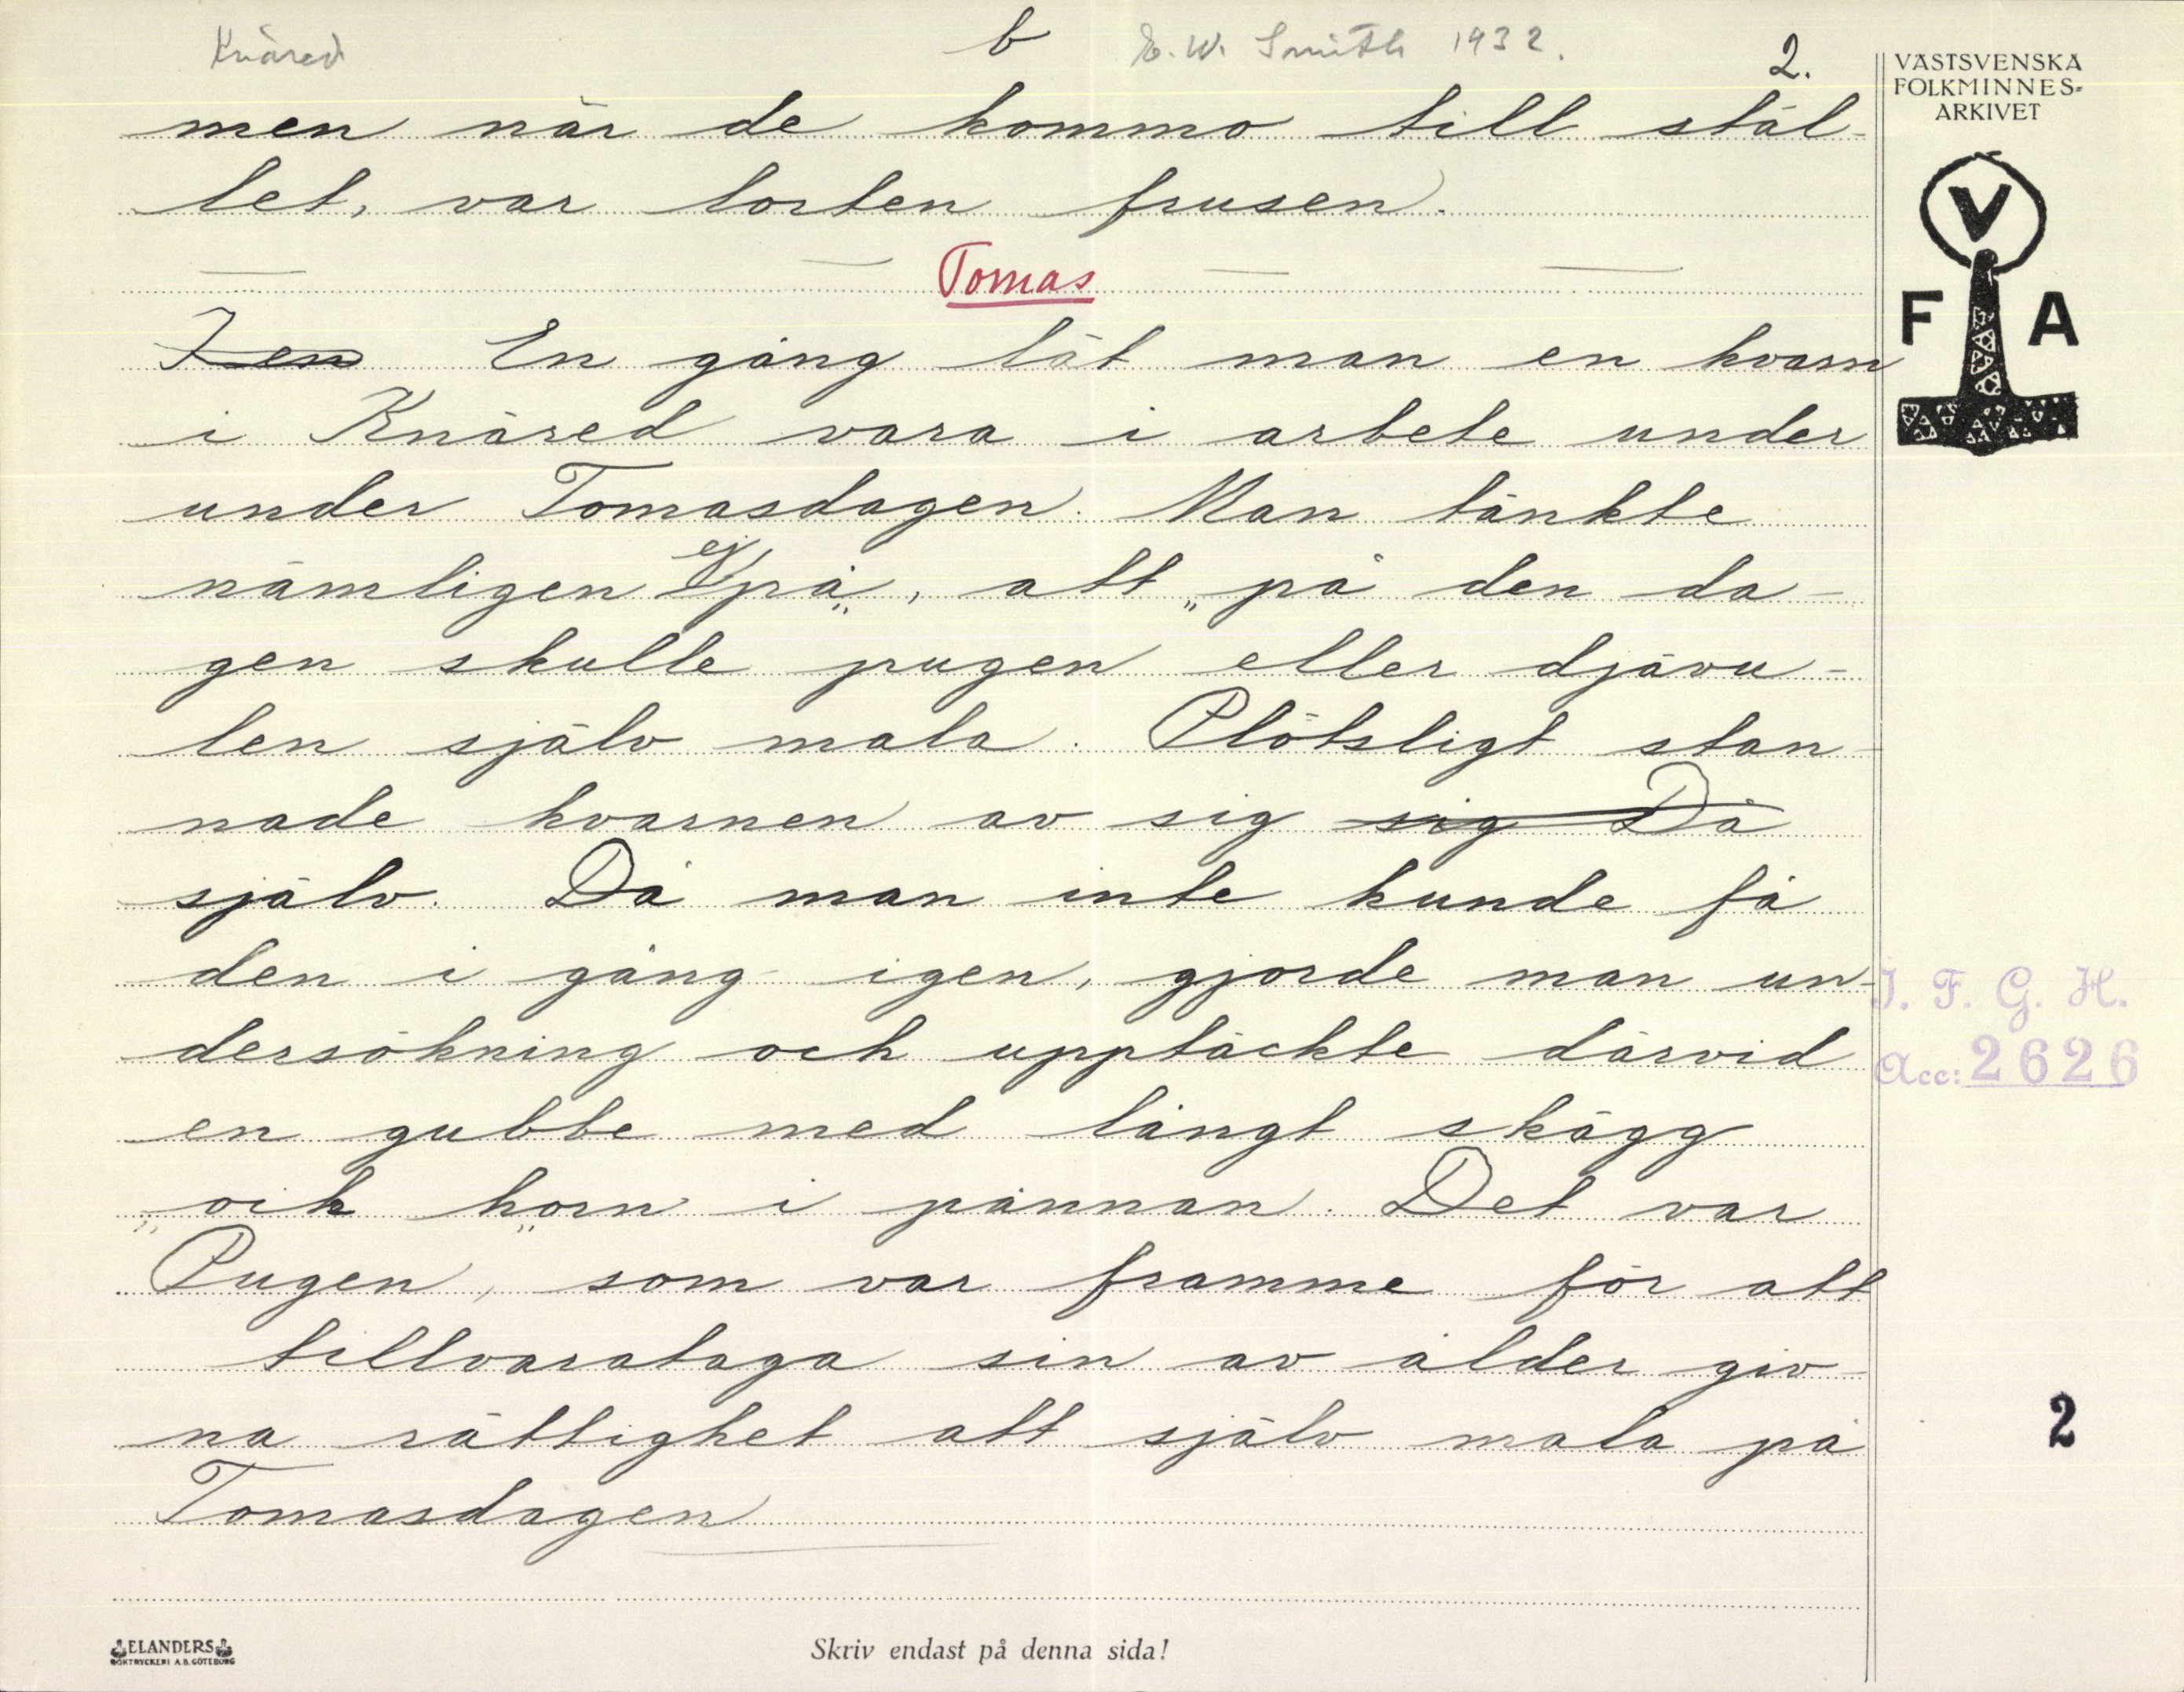 Knäred b E. W. Smith 1932. 2.
VÄSTSVENSKA
FOLKMINNES-
ARKIVET
V
F A
men när de kommo till stäl-
let, var lorten frusen.
Tomas
I en En gång lät man en kvarn
i Knäred vara i arbete under
under Tomasdagen. Man tänkte
nämligen ej på, att „på den da-
gen skulle pugen eller djävu-
len själv mala. Plötsligt stan-
nade kvarnen av sig sig Då
själv. Då man inte kunde få
den i gång igen, gjorde man un-
dersökning och upptäckte därvid
en gubbe med långt skägg
„och horn" i pannan. Det var
Pugen, som var framme för att
tillvarataga sin av ålder giv-
na rättighet att själv mala på
Tomasdagen
I. F. G. H.
Acc: 2626
2
ELANDERS
BOKTRYCKERI A.B. GÖTEBORG
Skriv endast på denna sida!